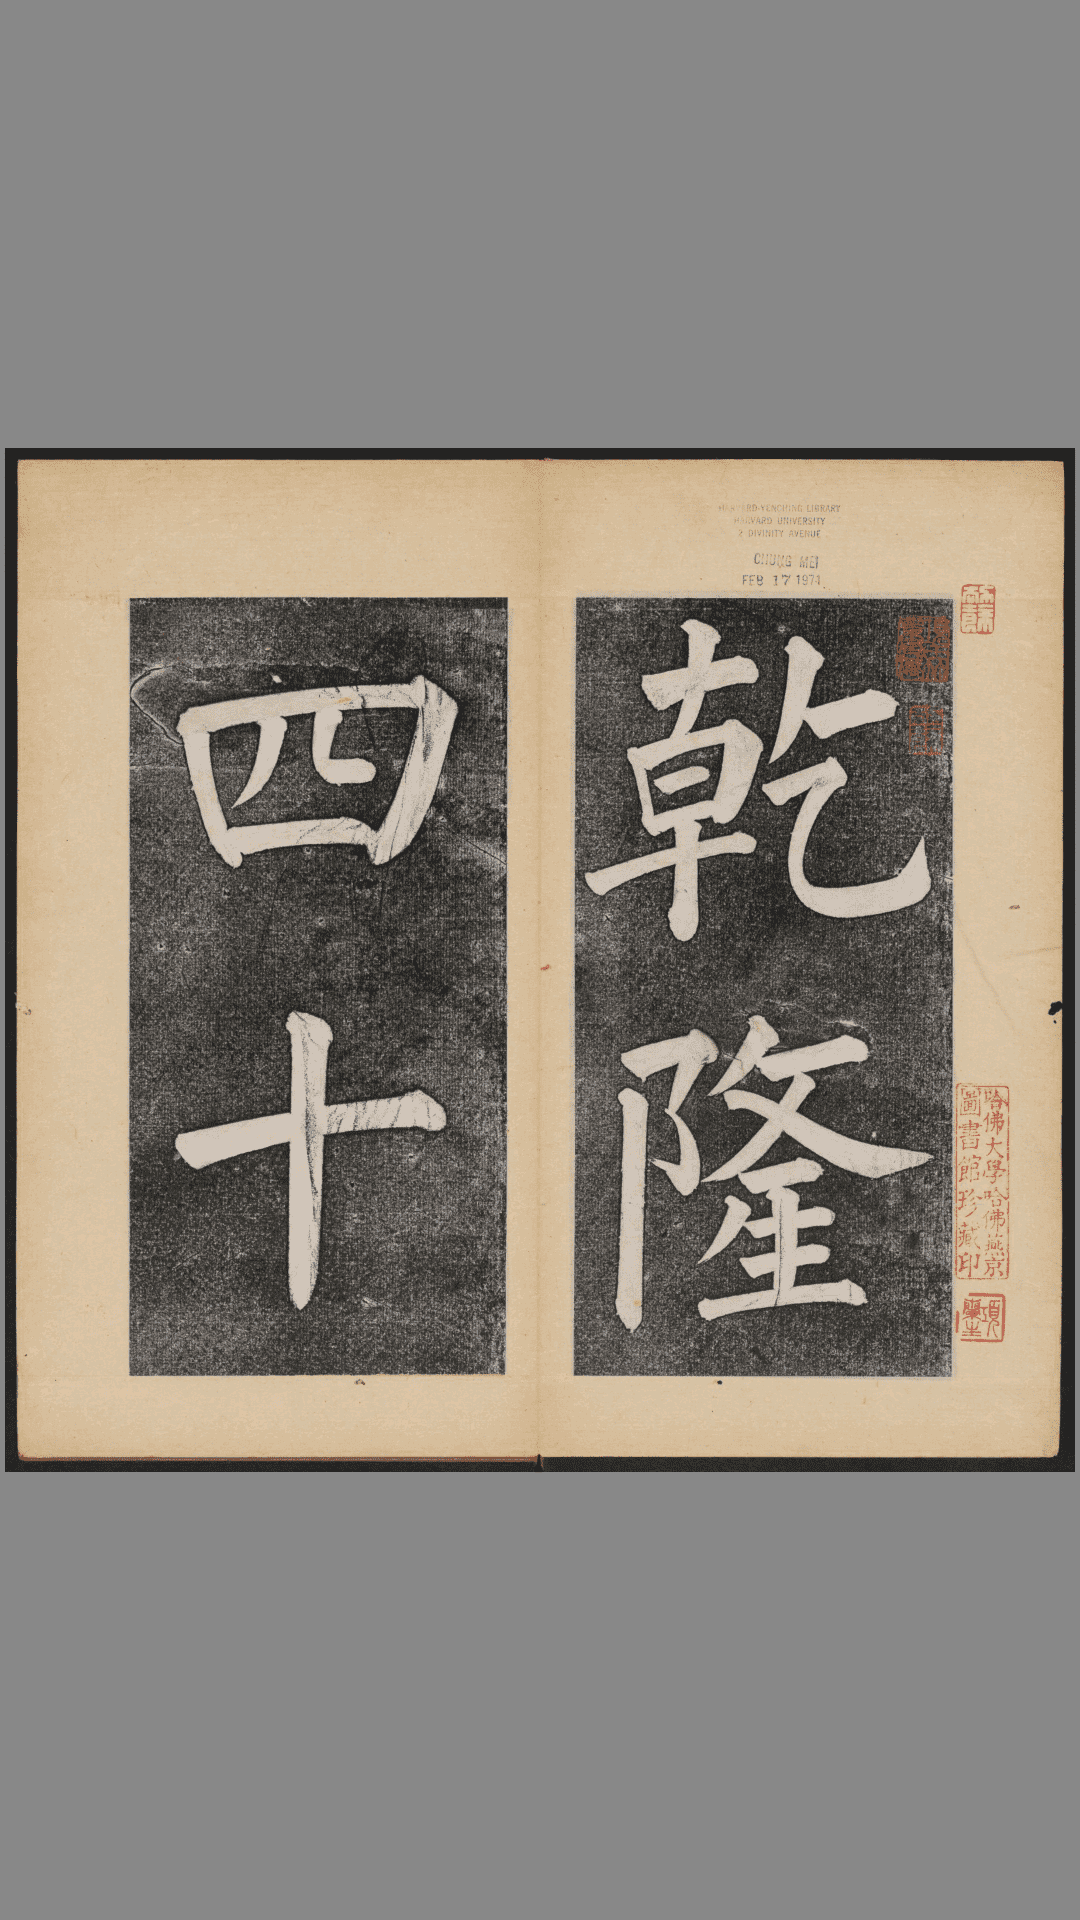 HARVARD-YENCHING LIBRARY
HARVARD UNIVERSITY
2 DIVINITY AVENUE
CHUNG MEI
FEB 17 1971
乾隆
四十
哈佛大學哈佛燕京
圖書館珍藏印